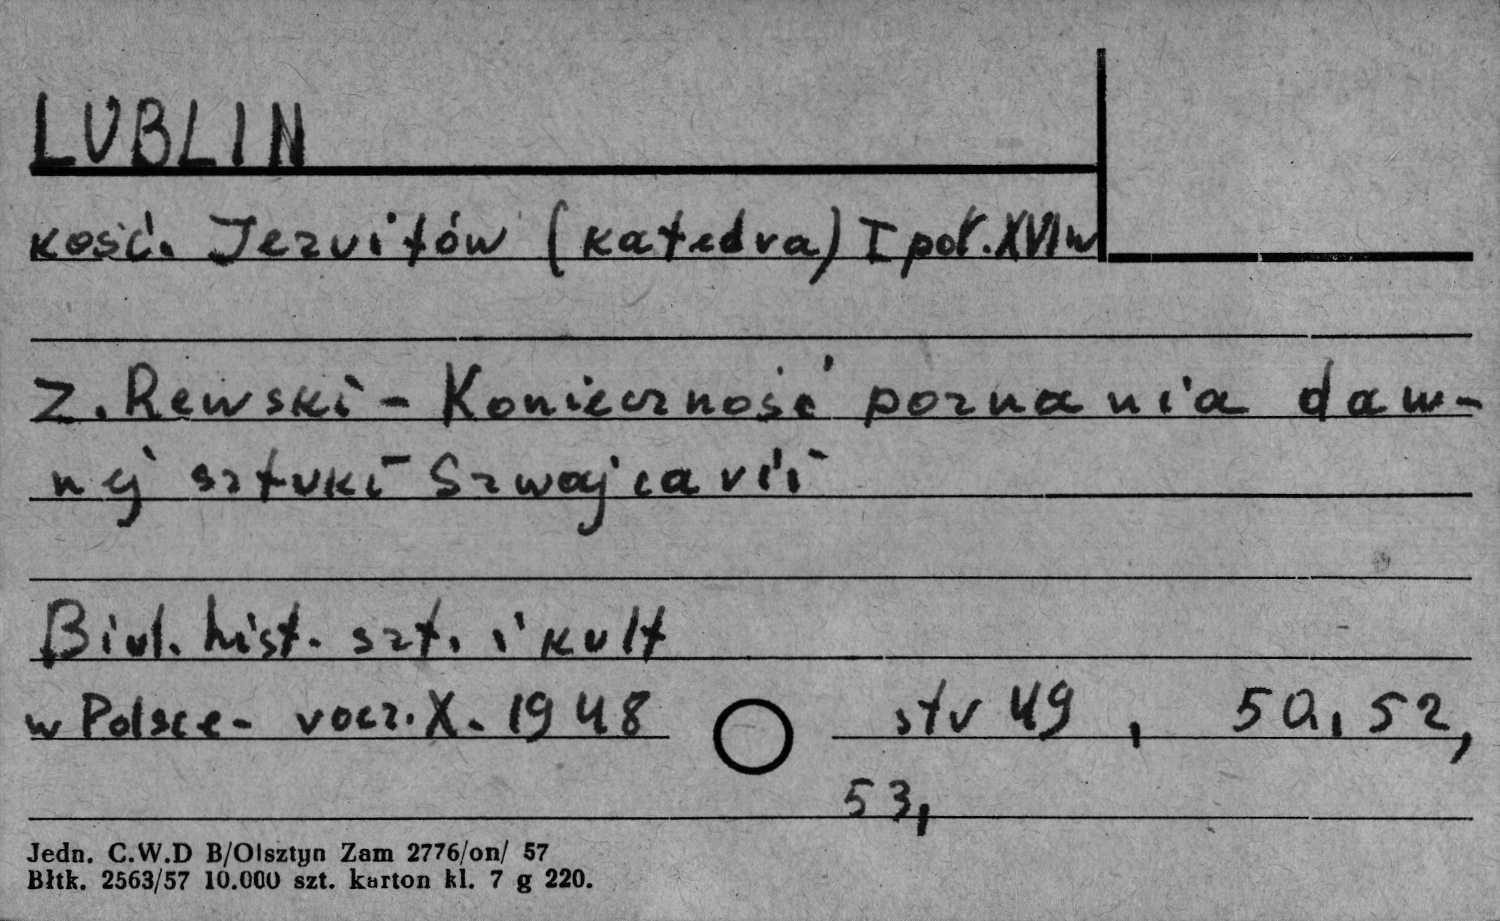 LUBLIN
kość. Jezuitów (katedra) I poł. XVI w
Z. Rewski - Konieczność poznania daw-
nej sztuki Szwajcarii
Biul. hist. szt. i kult
w Polsce - rocz. X. 1948 str 49, 50, 52,
53,
Jedn. C.W.D B/Olsztyn Zam 2776/on/ 57
Błtk. 2563/57 10.000 szt. karton kl. 7 g 220.